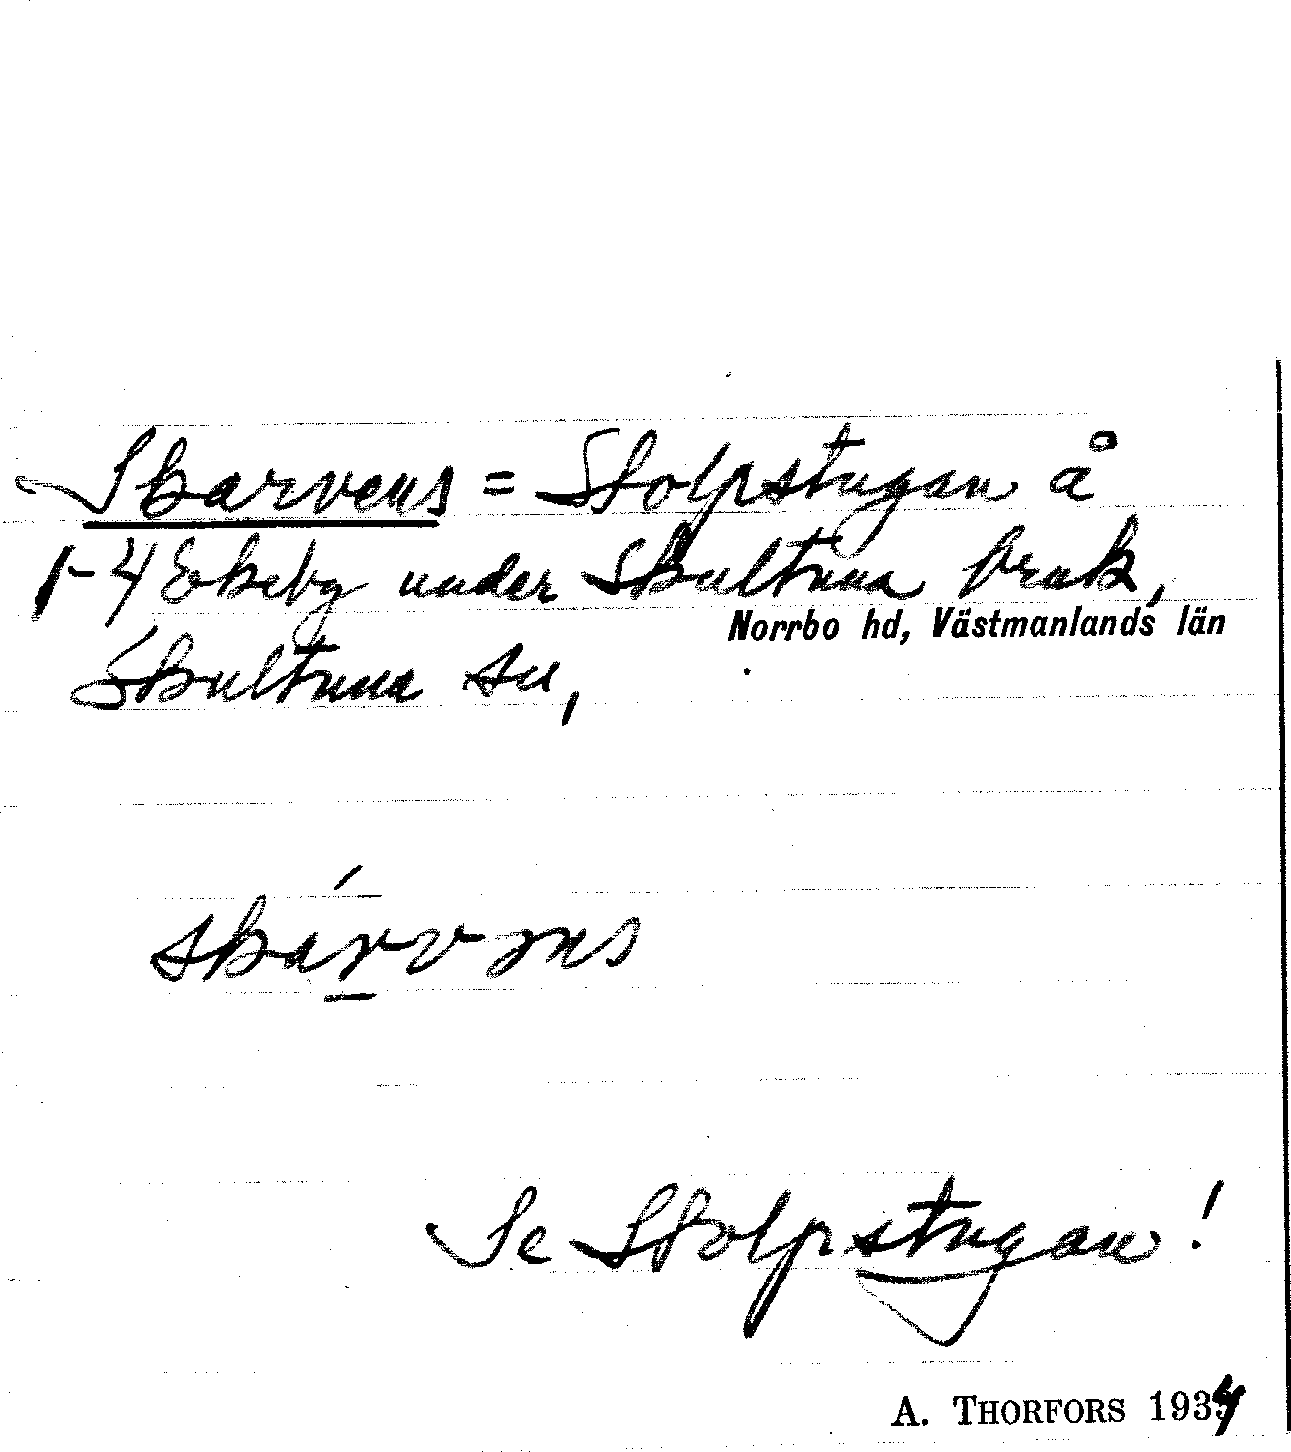 Skarvens = Stolpstugan å
1-4 Ekeby under Skultuna bruk,
Norrbo hd, Västmanlands län
Skultuna sn,
skárvəns
Se Stolpstugan!
A. THORFORS 1934